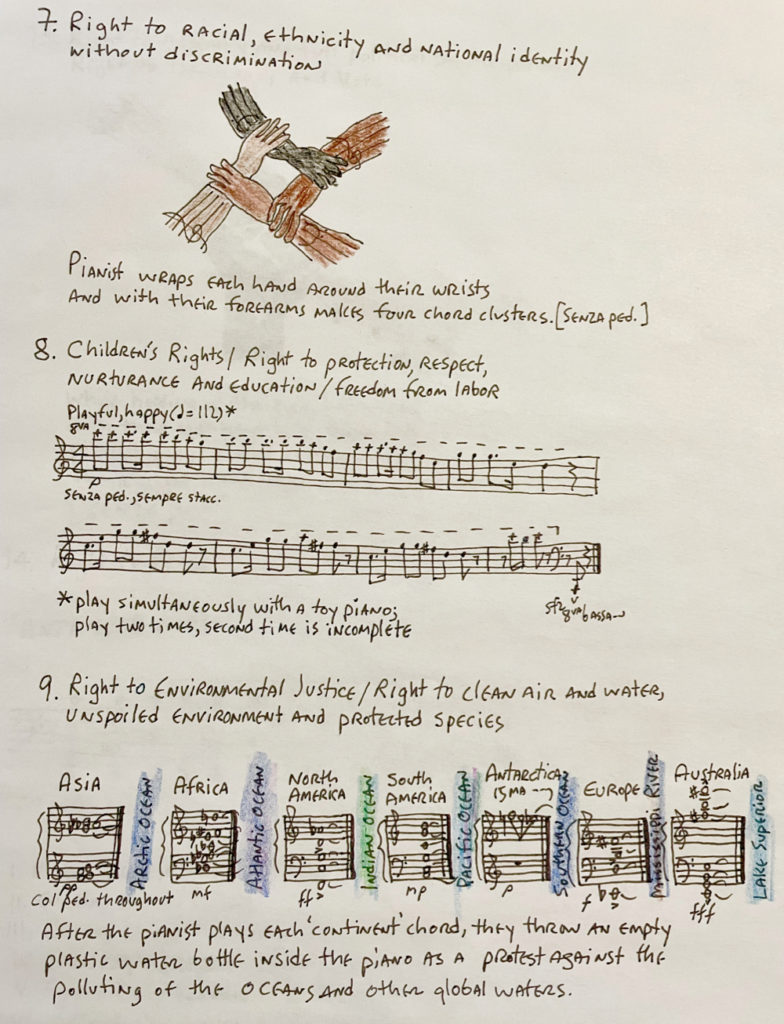 7. Right to RACIAL, Ethnicity AND NATIONAL identity
without discrimination
Pianist wraps each hand around their wrists
and with their forearms makes four chord clusters. [senza ped.]
8. Children's Rights / Right to protection, respect,
nurturance and education / freedom from labor
Playful, happy (♩=112)*
8va
p
senza ped., sempre stacc.
*play simultaneously with a toy piano;
play two times, second time is incomplete
sfz 8va bassa
9. Right to Environmental Justice / Right to clean air and water,
unspoiled environment and protected species
Asia
Arctic Ocean
Africa
Atlantic Ocean
North America
Indian Ocean
South America
Pacific Ocean
Antarctica
15ma
Southern Ocean
Europe
Mississippi River
Australia
Lake Superior
pp
col ped. throughout
mf
ff
mp
p
f
fff
After the pianist plays each 'continent' chord, they throw an empty
plastic water bottle inside the piano as a protest against the
polluting of the oceans and other global waters.